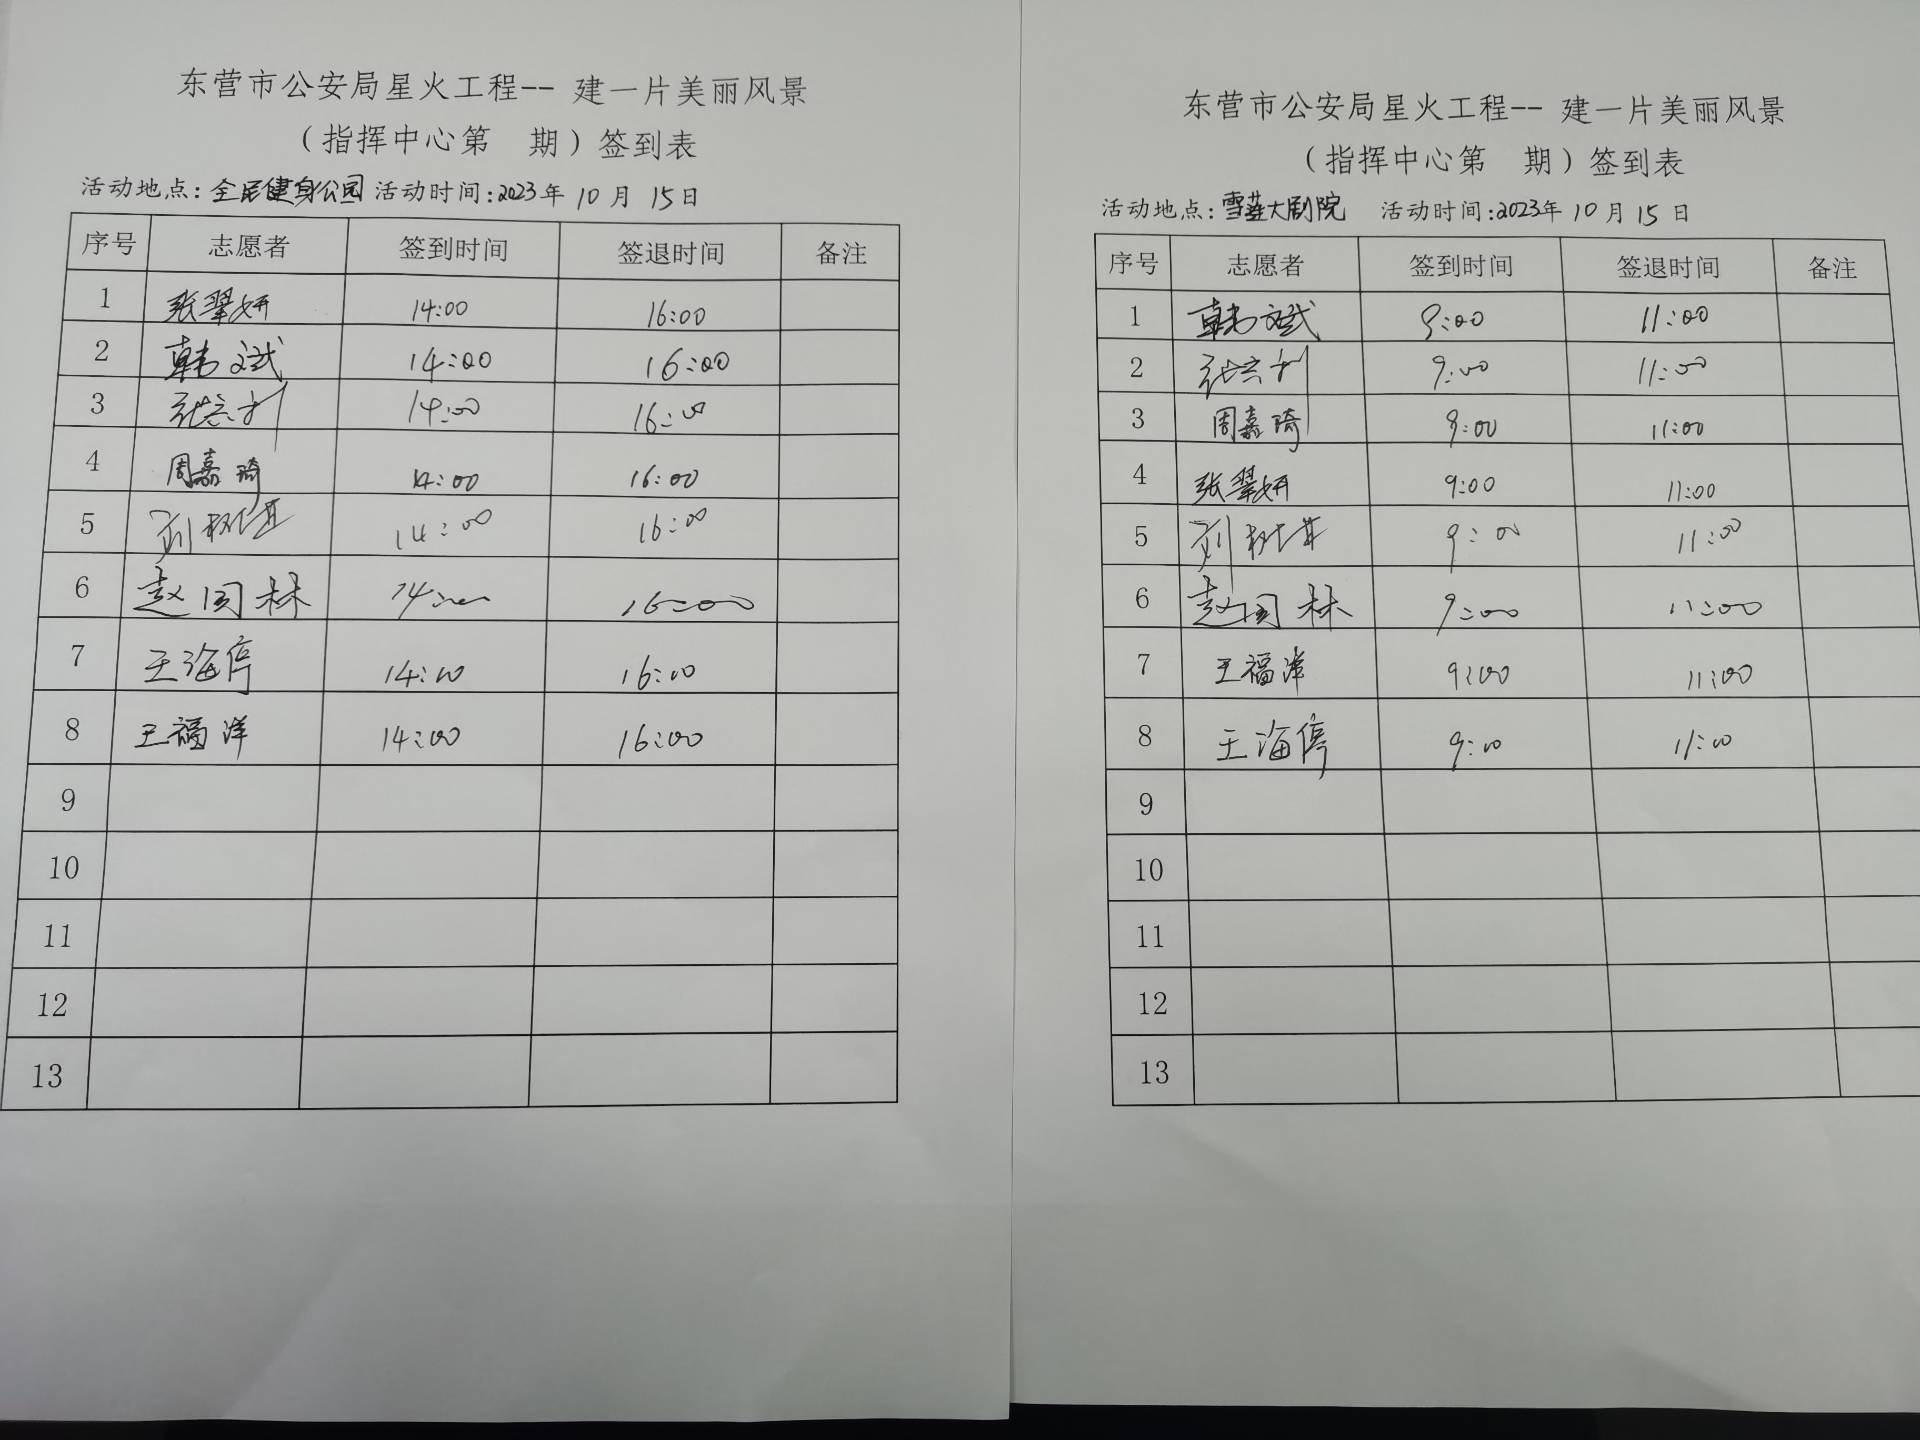 东营市公安局星火工程-- 建一片美丽风景
（指挥中心第 期）签到表
活动地点：全民健身公园 活动时间：2023年 10 月 15日
序号 志愿者 签到时间 签退时间 备注
1 张翠妍 14:00 16:00
2 韩文斌 14:00 16:00
3 14:00 16:00
4 周嘉琦 14:00 16:00
5 刘 14:00 16:00
6 赵国林 14:00 16:00
7 王海停 14:00 16:00
8 王福洋 14:00 16:00
9
10
11
12
13
东营市公安局星火工程-- 建一片美丽风景
（指挥中心第 期）签到表
活动地点：雪莲大剧院 活动时间：2023年 10 月 15 日
序号 志愿者 签到时间 签退时间 备注
1 韩文斌 9:00 11:00
2 9:00 11:00
3 周嘉琦 9:00 11:00
4 张翠妍 9:00 11:00
5 刘 9:00 11:00
6 赵国林 9:00 11:00
7 王福洋 9:00 11:00
8 王海停 9:00 11:00
9
10
11
12
13